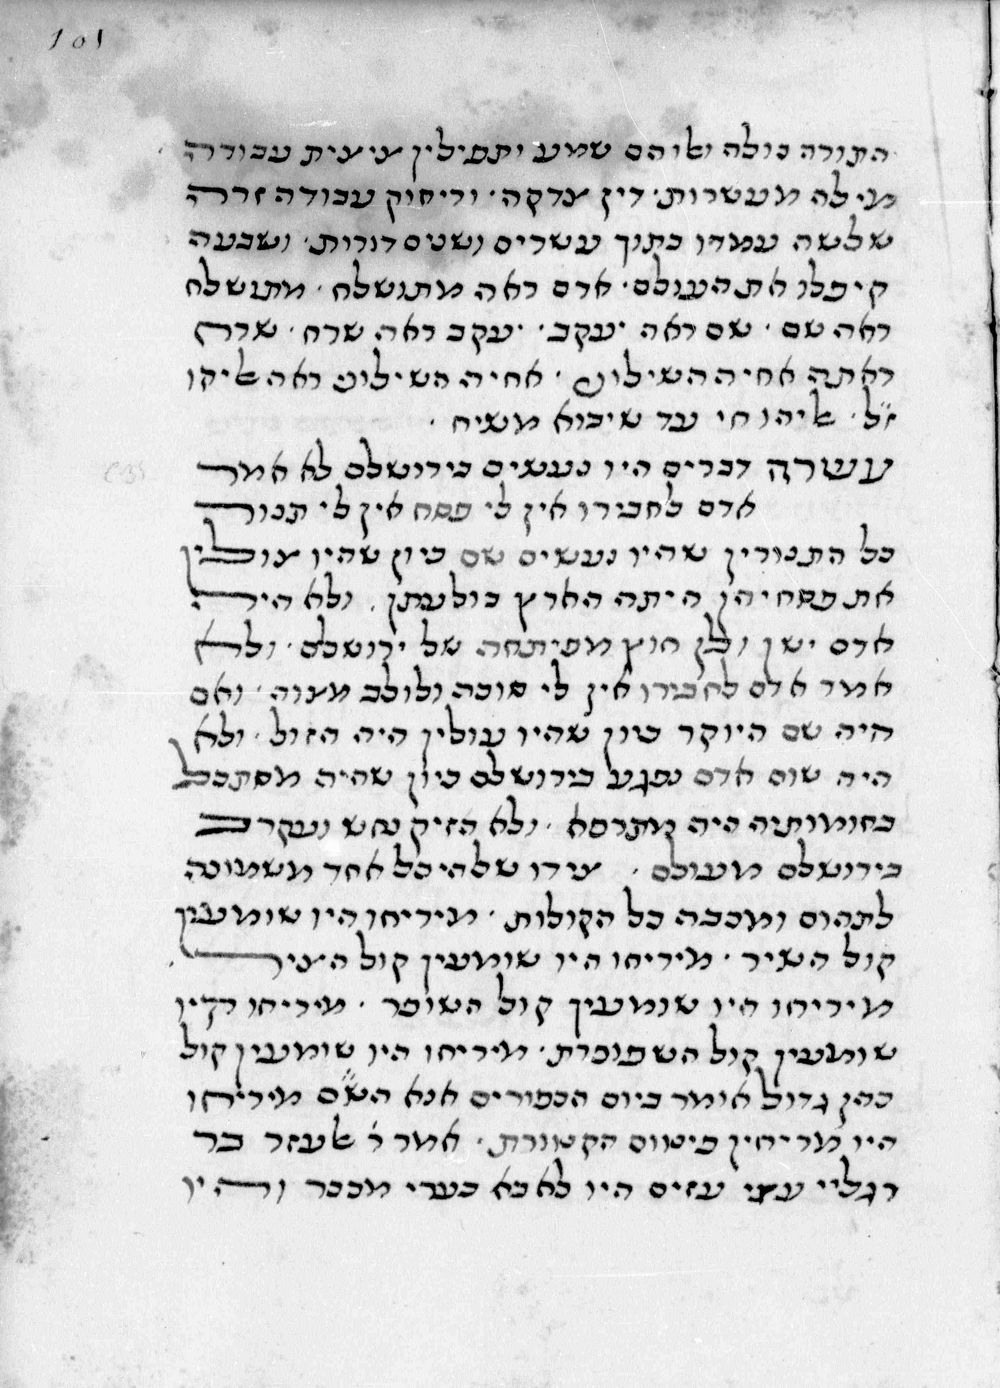 101
התורה כולה ואלו הם שמע ותפילין ציצית עבודה
מילה מעשרות׳ דין צדקה׳ וריחוק עבודה זרה
שלשה עמדו בתוך עשרים ושנים דורות׳ ושבעה
קיפלו את העולם׳ אדם ראה מתושלח׳ מתושלח
ראה שם׳ שם ראה יעקב׳ יעקב ראה שרח׳ שרח
ראתה אחיה השילוני׳ אחיה השילוני ראה אליהו
ז״ל׳ אליהו חי עד שיבוא משיח׳
עשרה דברים היו נעשים בירושלם לא אמר
אדם לחבירו אין לי פסח אין לי תנור
כל התנורין שהיו נעשים שם כיון שהיו צולין
את פסחיהן היתה הארץ בולעתן׳ ולא היה
אדם ישן ולן חוץ מפיתחה של ירושלם׳ ולא
אמר אדם לחבירו אין לי סוכה ולולב מצוה׳ ואם
היה שם היוקר כיון שהיו עולין היה הזול׳ ולא
היה שום אדם נפגע בירושלם כיון שהיה מסתכל
בחומותיה היה מתרפא׳ ולא הזיק נחש ועקרב
בירושלם מעולם׳ צירו של היכל אחד משמונה
לתהום ומכבה כל הקולות׳ מיריחו היו שומעין
קול השיר׳ מיריחו היו שומעין קול הציר
מיריחו היו שומעין קול השופר׳ מיריחו היו
שומעין קול השפופרת׳ מיריחו היו שומעין קול
כהן גדול אומר ביום הכפורים אנא הש״ם מיריחו
היו מריחין פיטום הקטורת׳ אמר ר׳ אלעזר בר
רגליי עצי עזים היו לאבא בערי מכבר והיו